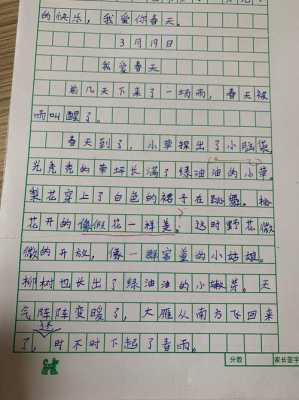 的快乐，我爱你春天。
3月19日
我爱春天
前几天下来了一场雨，春天被
雨叫醒了。
春天到了，小草探出了小脑袋
光秃秃的草坪长满了绿油油的小草。
梨花穿上了白色的裙子在跳舞。桃
花开的像假花一样美。这时野花微
微的开放，像一群害羞的小姑娘。
柳树也长出了绿油油的小嫩芽。天
气阵阵变暖了，大雁从南方飞回来
了，还时不时下起了春雨。
分数 家长签字